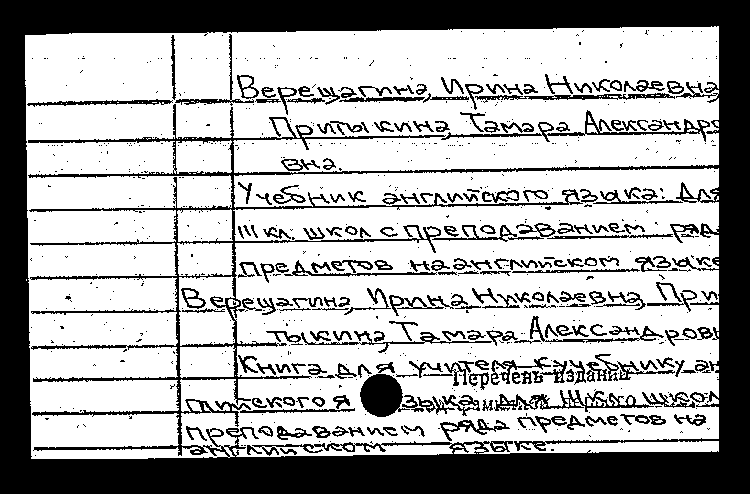 Верещагина, Ирина Николаевна,
Притыкина, Тамара Александро
вна.
Учебник английского языка: Для
III кл. школ с преподаванием ряда
предметов на английском языке
Верещагина, Ирина Николаевна, При
тыкина, Тамара Александровн
Книга для учителя к учебнику ан
Перечень издания
глийского языка для III кл. школ
преподаванием ряда предметов на
английском языке.